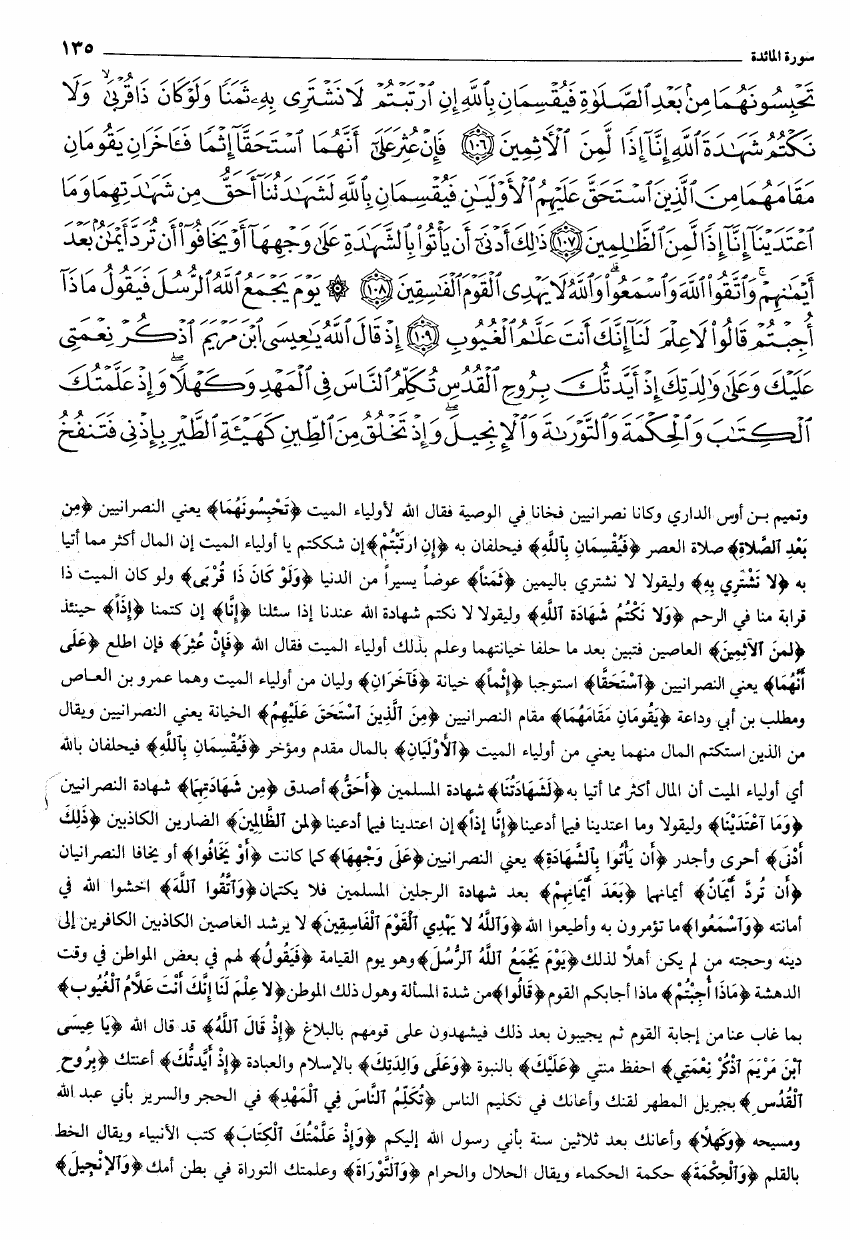 سورة المائدة ١٣٥
تَحْبِسُونَهُمَا مِنۢ بَعْدِ ٱلصَّلَوٰةِ فَيُقْسِمَانِ بِٱللَّهِ إِنِ ٱرْتَبْتُمْ لَا نَشْتَرِى بِهِۦ ثَمَنًا وَلَوْ كَانَ ذَا قُرْبَىٰ ۙ وَلَا
نَكْتُمُ شَهَـٰدَةَ ٱللَّهِ إِنَّآ إِذًا لَّمِنَ ٱلْـَٔاثِمِينَ ﴿١٠٦﴾ فَإِنْ عُثِرَ عَلَىٰٓ أَنَّهُمَا ٱسْتَحَقَّآ إِثْمًا فَـَٔاخَرَانِ يَقُومَانِ
مَقَامَهُمَا مِنَ ٱلَّذِينَ ٱسْتَحَقَّ عَلَيْهِمُ ٱلْأَوْلَيَـٰنِ فَيُقْسِمَانِ بِٱللَّهِ لَشَهَـٰدَتُنَآ أَحَقُّ مِن شَهَـٰدَتِهِمَا وَمَا
ٱعْتَدَيْنَآ إِنَّآ إِذًا لَّمِنَ ٱلظَّـٰلِمِينَ ﴿١٠٧﴾ ذَٰلِكَ أَدْنَىٰٓ أَن يَأْتُوا۟ بِٱلشَّهَـٰدَةِ عَلَىٰ وَجْهِهَآ أَوْ يَخَافُوٓا۟ أَن تُرَدَّ أَيْمَـٰنٌۢ بَعْدَ
أَيْمَـٰنِهِمْ ۗ وَٱتَّقُوا۟ ٱللَّهَ وَٱسْمَعُوا۟ ۗ وَٱللَّهُ لَا يَهْدِى ٱلْقَوْمَ ٱلْفَـٰسِقِينَ ﴿١٠٨﴾ ۞ يَوْمَ يَجْمَعُ ٱللَّهُ ٱلرُّسُلَ فَيَقُولُ مَاذَآ
أُجِبْتُمْ قَالُوا۟ لَا عِلْمَ لَنَآ إِنَّكَ أَنتَ عَلَّـٰمُ ٱلْغُيُوبِ ﴿١٠٩﴾ إِذْ قَالَ ٱللَّهُ يَـٰعِيسَى ٱبْنَ مَرْيَمَ ٱذْكُرْ نِعْمَتِى
عَلَيْكَ وَعَلَىٰ وَٰلِدَتِكَ إِذْ أَيَّدتُّكَ بِرُوحِ ٱلْقُدُسِ تُكَلِّمُ ٱلنَّاسَ فِى ٱلْمَهْدِ وَكَهْلًا ۖ وَإِذْ عَلَّمْتُكَ
ٱلْكِتَـٰبَ وَٱلْحِكْمَةَ وَٱلتَّوْرَىٰةَ وَٱلْإِنجِيلَ ۖ وَإِذْ تَخْلُقُ مِنَ ٱلطِّينِ كَهَيْـَٔةِ ٱلطَّيْرِ بِإِذْنِى فَتَنفُخُ
وتميم بـن أوس الداري وكانا نصرانيين فخانا في الوصية فقال الله لأولياء الميت ﴿تَحْبِسُونَهُمَا﴾ يعني النصرانيين ﴿مِن
بَعْدِ ٱلصَّلاةِ﴾ صلاة العصر ﴿فَيُقْسِمَانِ بِٱللَّهِ﴾ فيحلفان به ﴿إِنِ ارتَبْتُمْ﴾ إن شككتم يا أولياء الميت إن المال أكثر مما أتيا
به ﴿لا نَشْتَرِي بِهِ﴾ وليقولا لا نشتري باليمين ﴿ثَمَناً﴾ عوضاً يسيراً من الدنيا ﴿وَلَوْ كَانَ ذَا قُرْبَى﴾ ولو كان الميت ذا
قرابة منا في الرحم ﴿وَلا نَكْتُمُ شَهَادَةَ ٱللَّهِ﴾ وليقولا لا نكتم شهادة الله عندنا إذا سئلنا ﴿إِنَّا﴾ إن كتمنا ﴿إِذَاً﴾ حينئذ
﴿لمِنَ ٱلآثِمِينَ﴾ العاصين فتبين بعد ما حلفا خيانتهما وعلم بذلك أولياء الميت فقال الله ﴿فَإِنْ عُثِرَ﴾ فإن اطلع ﴿عَلَى
أَنَّهُمَا﴾ يعني النصرانيين ﴿ٱسْتَحَقَّا﴾ استوجبا ﴿إِثْماً﴾ خيانة ﴿فَآخَرَانِ﴾ وليان من أولياء الميت وهما عمرو بن العـاص
ومطلب بن أبي وداعة ﴿يَقُومَانِ مَقَامَهُمَا﴾ مقام النصرانيين ﴿مِنَ ٱلَّذِينَ ٱسْتَحَقَّ عَلَيْهِمُ﴾ الخيانة يعني النصرانيين ويقال
من الذين استكتم المال منهما يعني من أولياء الميت ﴿ٱلأَوْلَيَانِ﴾ بالمال مقدم ومؤخر ﴿فَيُقْسِمَانِ بِٱللَّهِ﴾ فيحلفان بالله
أي أولياء الميت أن المال أكثر مما أتيا به ﴿لَشَهَادَتُنَا﴾ شهادة المسلمين ﴿أَحَقُّ﴾ أصدق ﴿مِن شَهَادَتِهِمَا﴾ شهادة النصرانيين
﴿وَمَا ٱعْتَدَيْنَا﴾ وليقولا وما اعتدينا فيما أدعينا ﴿إِنَّا إِذاً﴾ إن اعتدينا فيما أدعينا ﴿لمن ٱلظَّالِمِينَ﴾ الضارين الكاذبين ﴿ذَلِكَ
أَدْنَى﴾ أحرى وأجدر ﴿أَن يَأْتُوا بِٱلشَّهَادَةِ﴾ يعني النصرانيين ﴿عَلَى وَجْهِهَا﴾ كما كانت ﴿أَوْ يَخَافُوا﴾ أو يخافا النصرانيان
﴿أَن تُرَدَّ أَيْمَانٌ﴾ أيمانهما ﴿بَعْدَ أَيْمَانِهِمْ﴾ بعد شهادة الرجلين المسلمين فلا يكتمان ﴿وَٱتَّقُوا ٱللَّهَ﴾ اخشوا الله في
أمانته ﴿وَٱسْمَعُوا﴾ ما تؤمرون به وأطيعوا الله ﴿وَٱللَّهُ لا يَهْدِي ٱلْقَوْمَ ٱلْفَاسِقِينَ﴾ لا يرشد العاصين الكاذبين الكافرين إلى
دينه وحجته من لم يكن أهلاً لذلك ﴿يَوْمَ يَجْمَعُ ٱللَّهُ ٱلرُّسُلَ﴾ وهو يوم القيامة ﴿فَيَقُولُ﴾ لهم في بعض المواطن في وقت
الدهشة ﴿مَاذَا أُجِبْتُمْ﴾ ماذا أجابكم القوم ﴿قَالُوا﴾ من شدة المسألة وهول ذلك الموطن ﴿لا عِلْمَ لَنَا إِنَّكَ أَنْتَ عَلَّامُ ٱلْغُيُوبِ﴾
بما غاب عنا من إجابة القوم ثم يجيبون بعد ذلك فيشهدون على قومهم بالبلاغ ﴿إِذْ قَالَ ٱللَّهُ﴾ قد قال الله ﴿يَا عِيسَى
ٱبْنَ مَرْيَمَ ٱذْكُرْ نِعْمَتِي﴾ احفظ منتي ﴿عَلَيْكَ﴾ بالنبوة ﴿وَعَلَى وَالِدَتِكَ﴾ بالإسلام والعبادة ﴿إِذْ أَيَّدتُّكَ﴾ أعنتك ﴿بِرُوحِ
ٱلْقُدُسِ﴾ بجبريل المطهر لقنك وأعانك في تكليم الناس ﴿تُكَلِّمُ ٱلنَّاسَ فِي ٱلْمَهْدِ﴾ في الحجر والسرير بأني عبد الله
ومسيحه ﴿وَكَهْلاً﴾ وأعانك بعد ثلاثين سنة بأني رسول الله إليكم ﴿وَإِذْ عَلَّمْتُكَ ٱلْكِتَابَ﴾ كتب الأنبياء ويقال الخط
بالقلم ﴿وَٱلْحِكْمَةَ﴾ حكمة الحكماء ويقال الحلال والحرام ﴿وَٱلتَّوْرَاةَ﴾ وعلمتك التوراة في بطن أمك ﴿وَٱلإِنْجِيلَ﴾